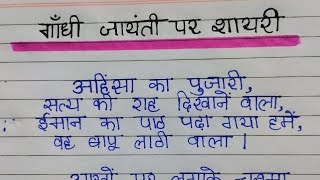 गाँधी जायंती पर शायरी
अहिंसा का पुजारी,
सत्य की राह दिखाने वाला,
ईमान का पाठ पढ़ा गया हमें,
वह बापू लाठी वाला ।